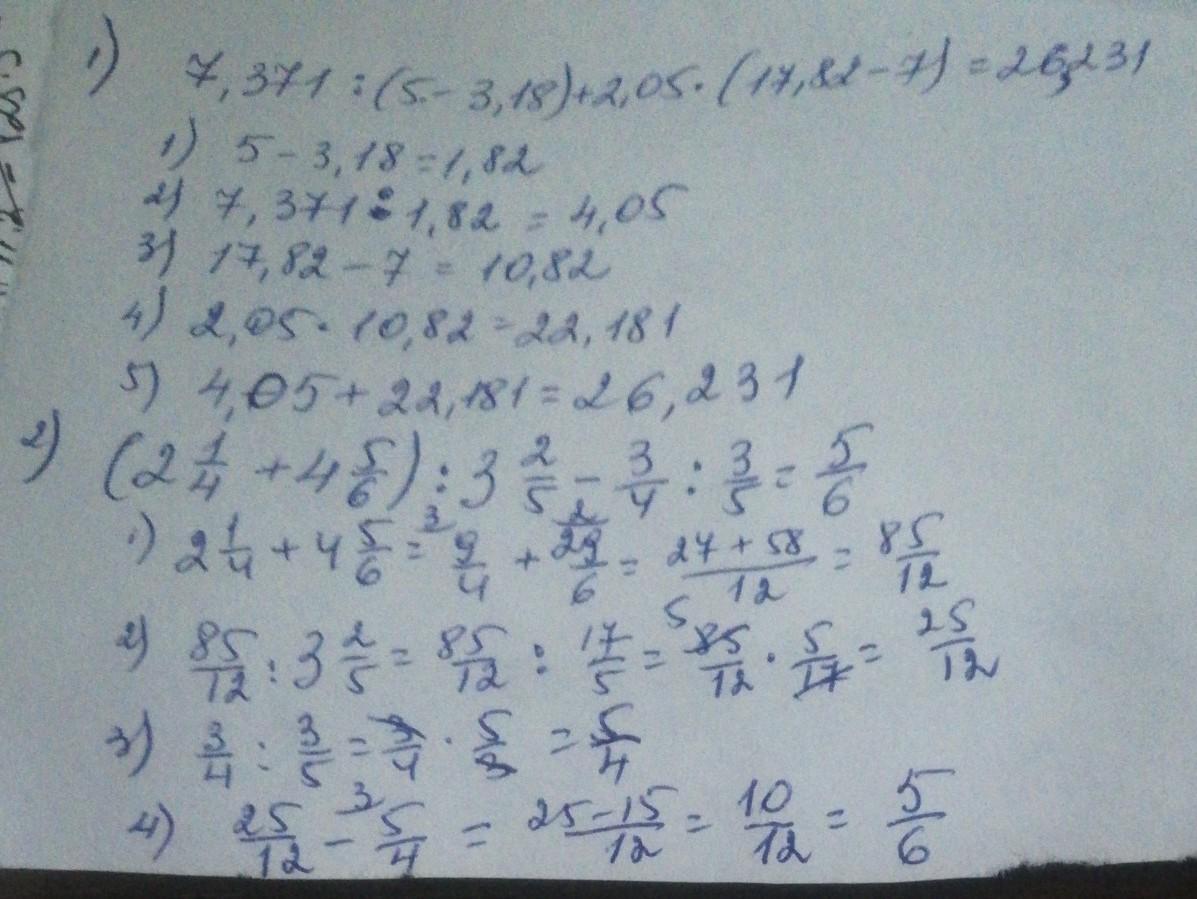 1) 7,371 : (5 - 3,18) + 2,05 · (17,82 - 7) = 26,231
1) 5 - 3,18 = 1,82
2) 7,371 : 1,82 = 4,05
3) 17,82 - 7 = 10,82
4) 2,05 · 10,82 = 22,181
5) 4,05 + 22,181 = 26,231
2) (2 1/4 + 4 5/6) : 3 2/5 - 3/4 : 3/5 = 5/6
1) 2 1/4 + 4 5/6 = ³ 9/4 + ² 29/6 = (27 + 58)/12 = 85/12
2) 85/12 : 3 2/5 = 85/12 : 17/5 = ⁵ 85/12 · 5/17 = 25/12
3) 3/4 : 3/5 = 3/4 · 5/3 = 5/4
4) 25/12 - ³ 5/4 = (25 - 15)/12 = 10/12 = 5/6